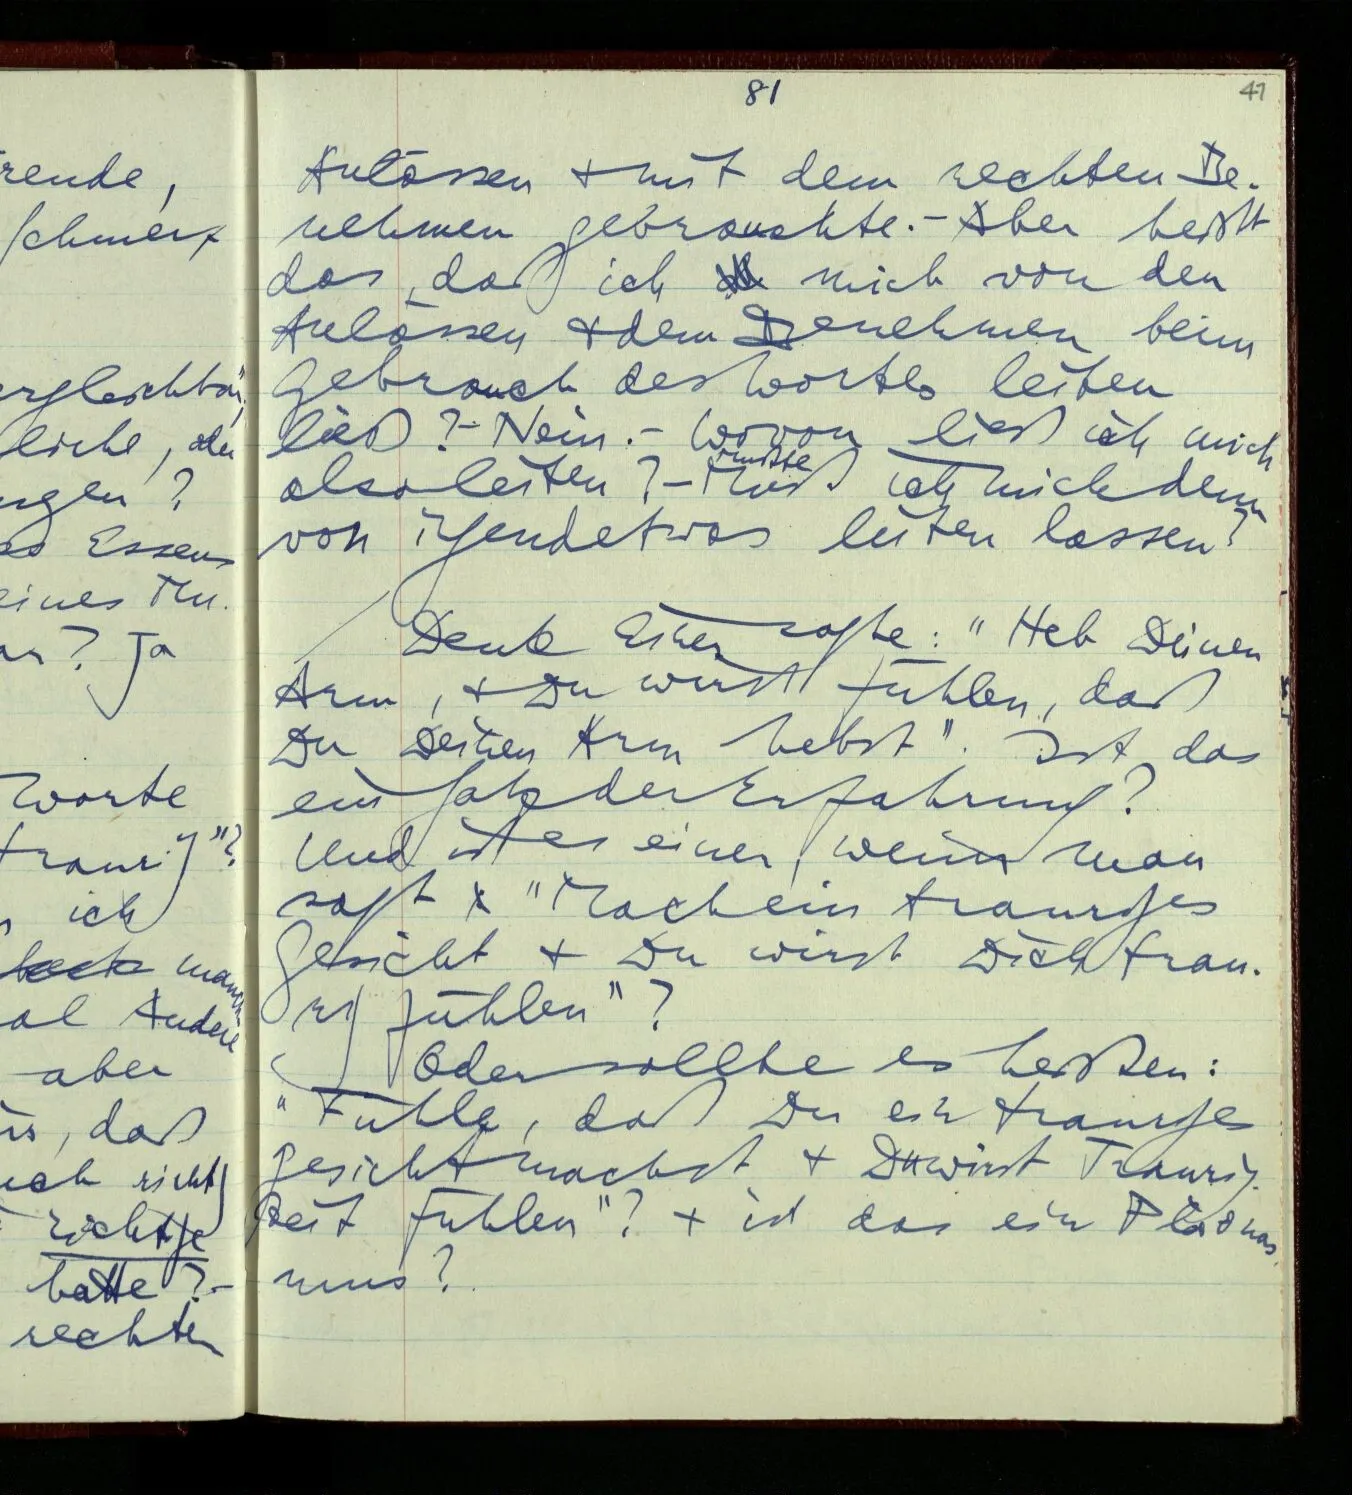 81
41
rende,
schmerz
ergleichbar,
liche, oder
ngen?
Essens
eines Mu.
Ja
Worte
traurig"?
ich
man
al Andere
aber
daß
auch richtig
richtige
hatte?–
rechten
Anlässen + mit dem rechten Be-
nehmen gebrauchte.– Aber heißt
das, daß ich mich von den
Anlässen + dem Benehmen beim
Gebrauch des Wortes leiten
ließ?– Nein.– Wovon ließ ich mich
also leiten?– Muß mußte ich mich denn
von irgendetwas leiten lassen?
Denk Einer sagte: "Heb Deinen
Arm, + Du wirst fühlen, daß
Du Deinen Arm hebst". Ist das
ein Satz der Erfahrung?
Und ist es einer, wenn man
sagt "Mach ein trauriges
Gesicht + Du wirst Dich trau-
rig fühlen"?
Oder sollte es heißen:
"Fühle, daß Du ein trauriges
Gesicht machst, + Du wirst Traurig-
keit fühlen"? + ist das ein Pleonas-
mus?